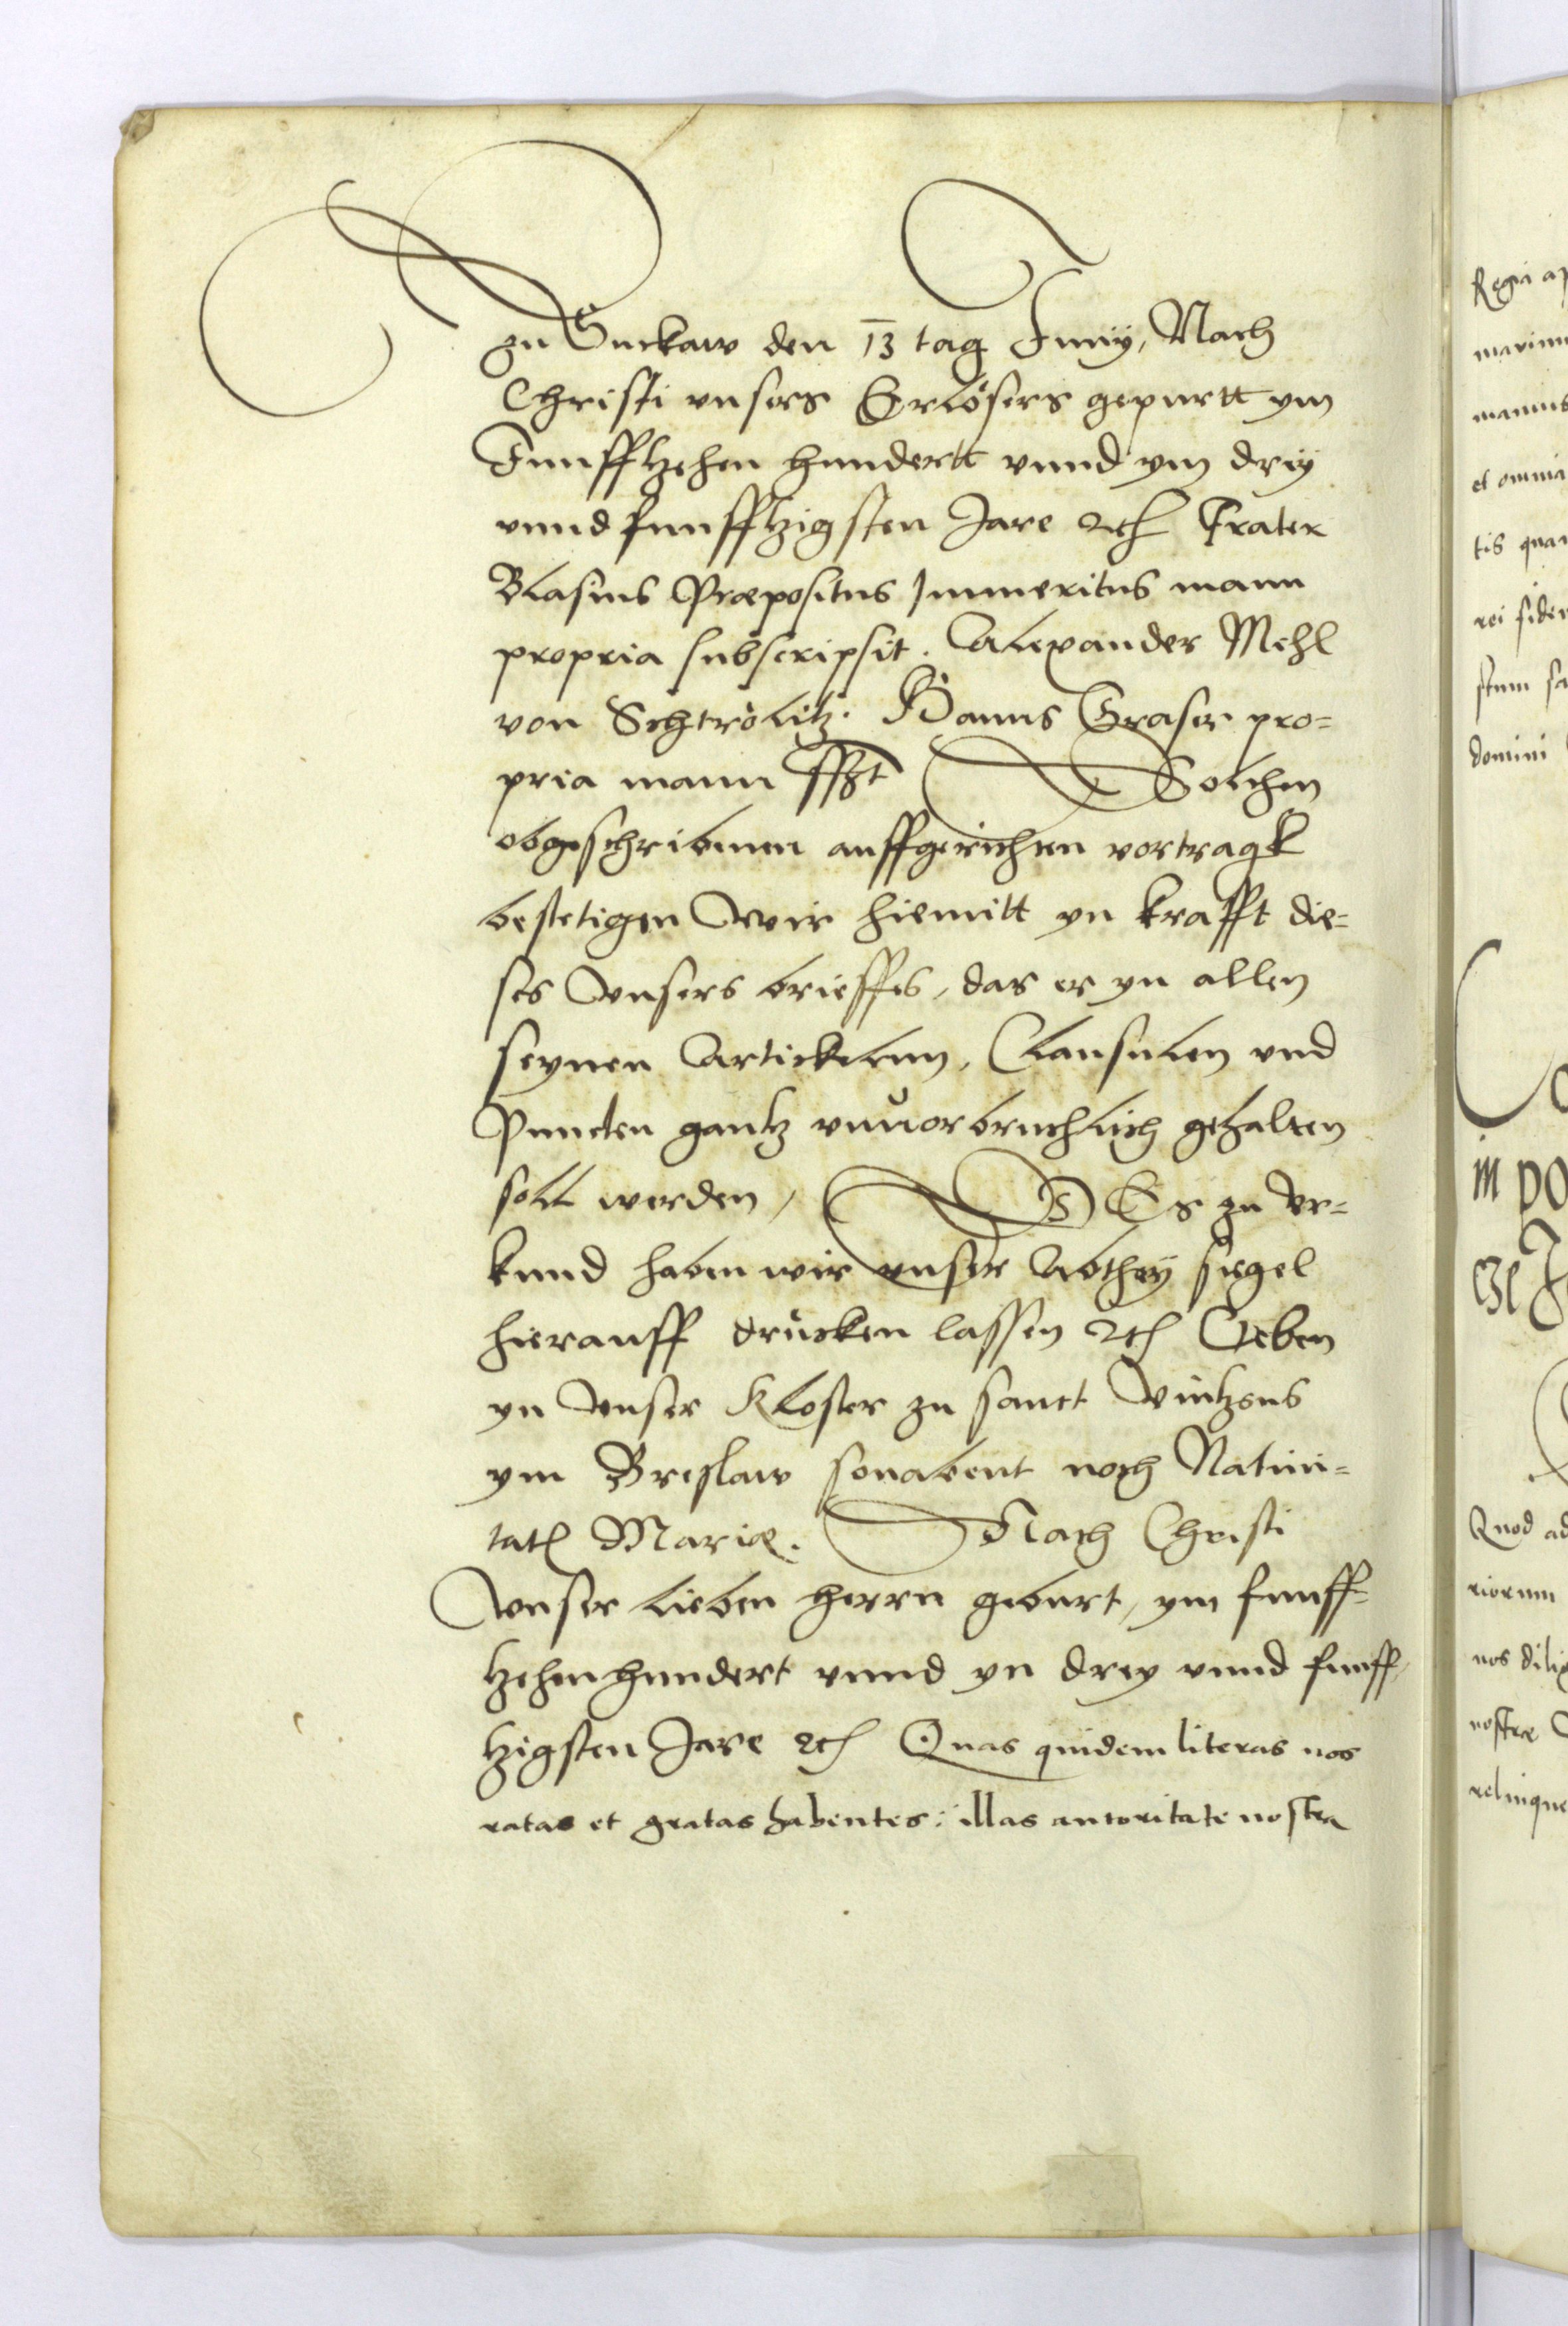 zu Guckaw den 13 tag Junij, Nach
Christi vnsers Erlösers gepurtt ym
Funffzehen hundertt vnnd ym drij
vnnd funfftzigsten Jare etc Frater
Blasius Præpositus Immeritus manu
propria subscripsit. Alexander Mehl
von Schtrölitz. Hanns Graser pro=
pria manu sszt Solchen
obgeschribenen auffgerichten vortragk
bestetigen Wir hiemitt yn krafft die=
ses Vnsers brieffes, das er yn allen
seynen Artickelnn, Clausulen vnd
Puncten gantz vnuorbruchlich gehalten
soll werden, DEs zu Vr=
kund haben wir vnser Abthey siegel
hierauff drucken lassen etc Geben
yn Vnser Kloster zu sanct Vintzens
ym Breslaw sonabent noch Natiui=
tat Mariæ. Nach Christi
Vnser lieben herrn geburt, ym funff=
tzehenhundert vnnd yn drey vnnd funff,
tzigsten Jare etc Quas quidem literas nos
ratas et gratas habentes: illas autoritate nostra
Regia
et omnia
tis
rei
domini
in
Quod
riorum
nos
nostræ